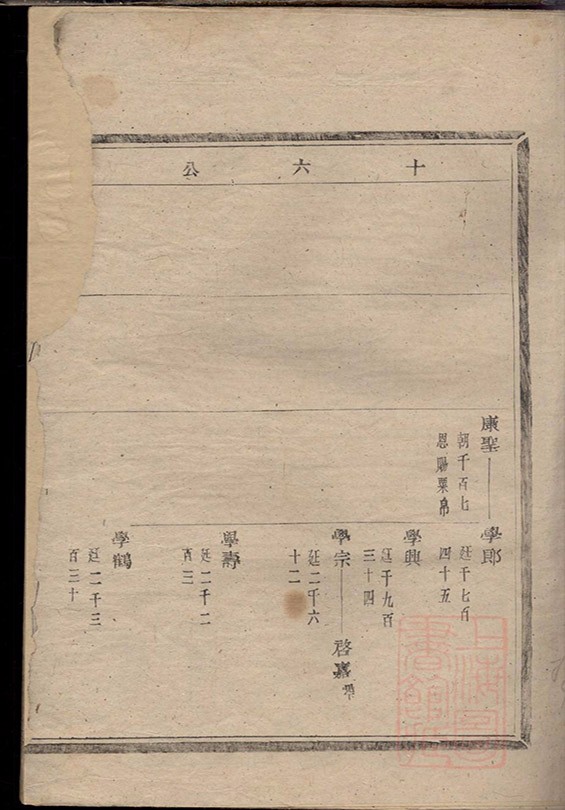 十六公
康聖
朝千百七
恩賜粟帛
學郎
廷千七百
四十五
學興
廷千九百
三十四
學宗
廷二千六
十二
啓
學壽
廷二千二
百三
學鶴
廷二千三
百三十
上海圖
書館藏